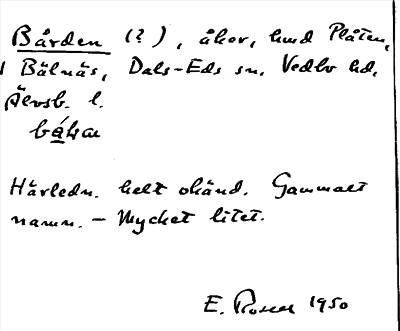 Bården (?), åkor, hmd Platen,
i Bälnäs, Dals-Eds sn. Vedbo hd,
Älvsb. l.
Härledn. helt okänd. Gammalt
namn. – Mycket litet.
E. 1950